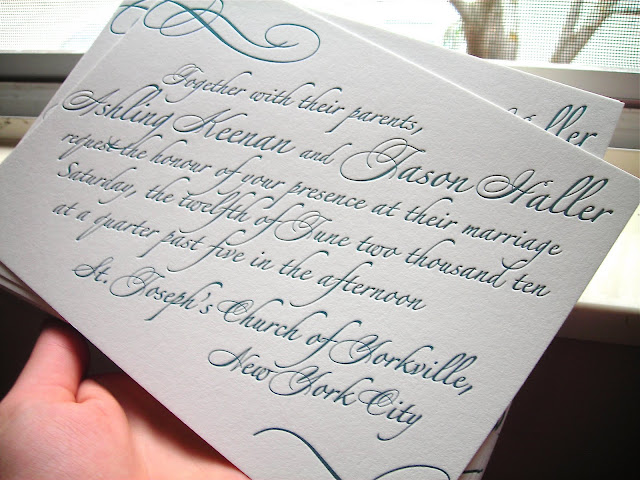 Together with their parents,
Ashling Keenan and Jason Haller
request the honour of your presence at their marriage
Saturday, the twelfth of June two thousand ten
at a quarter past five in the afternoon
St. Joseph's Church of Yorkville,
New York City
Haller